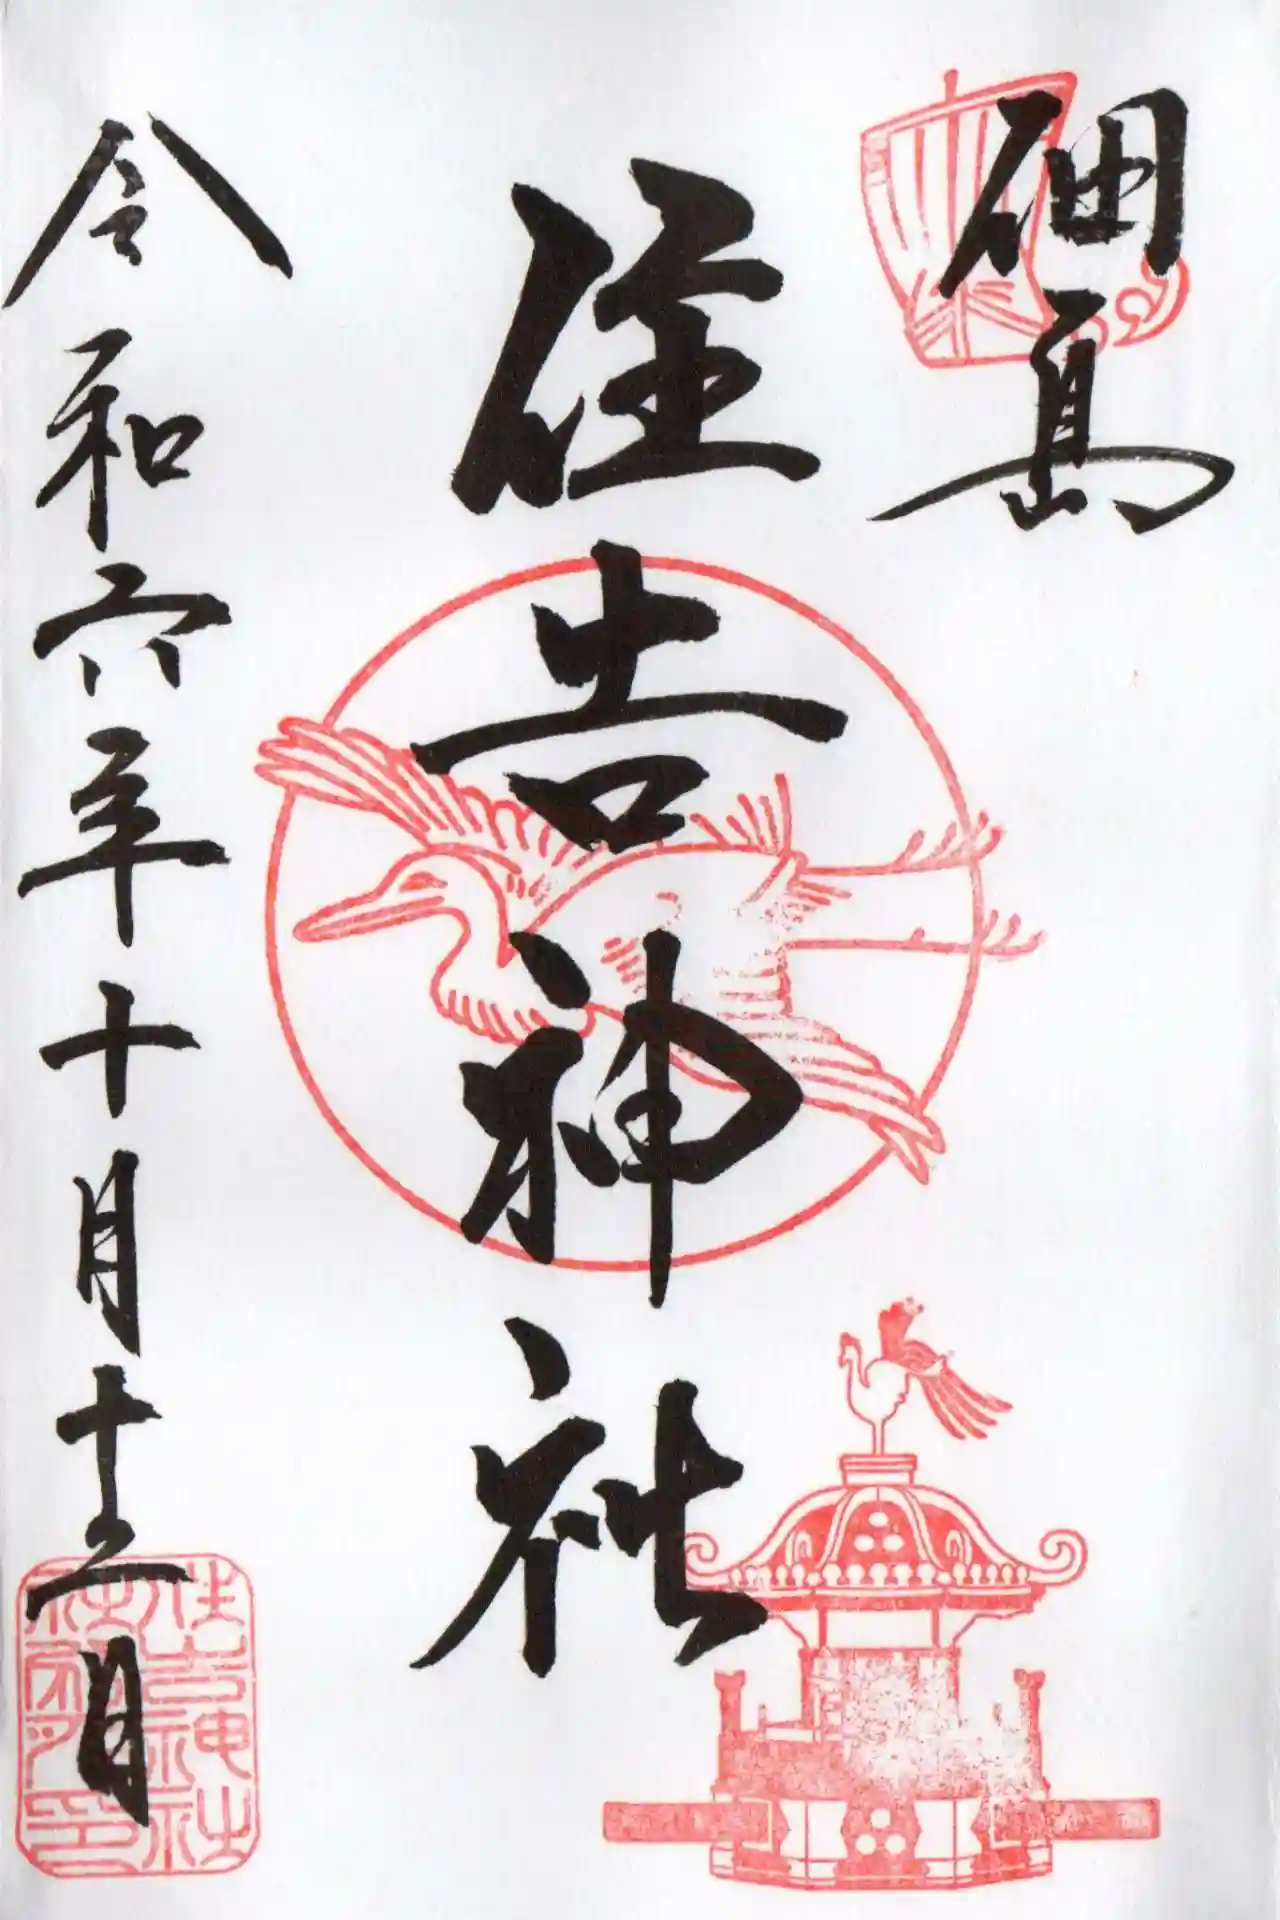 佃島
住吉神社
令和六年十月十二日
住吉神社
社務所印